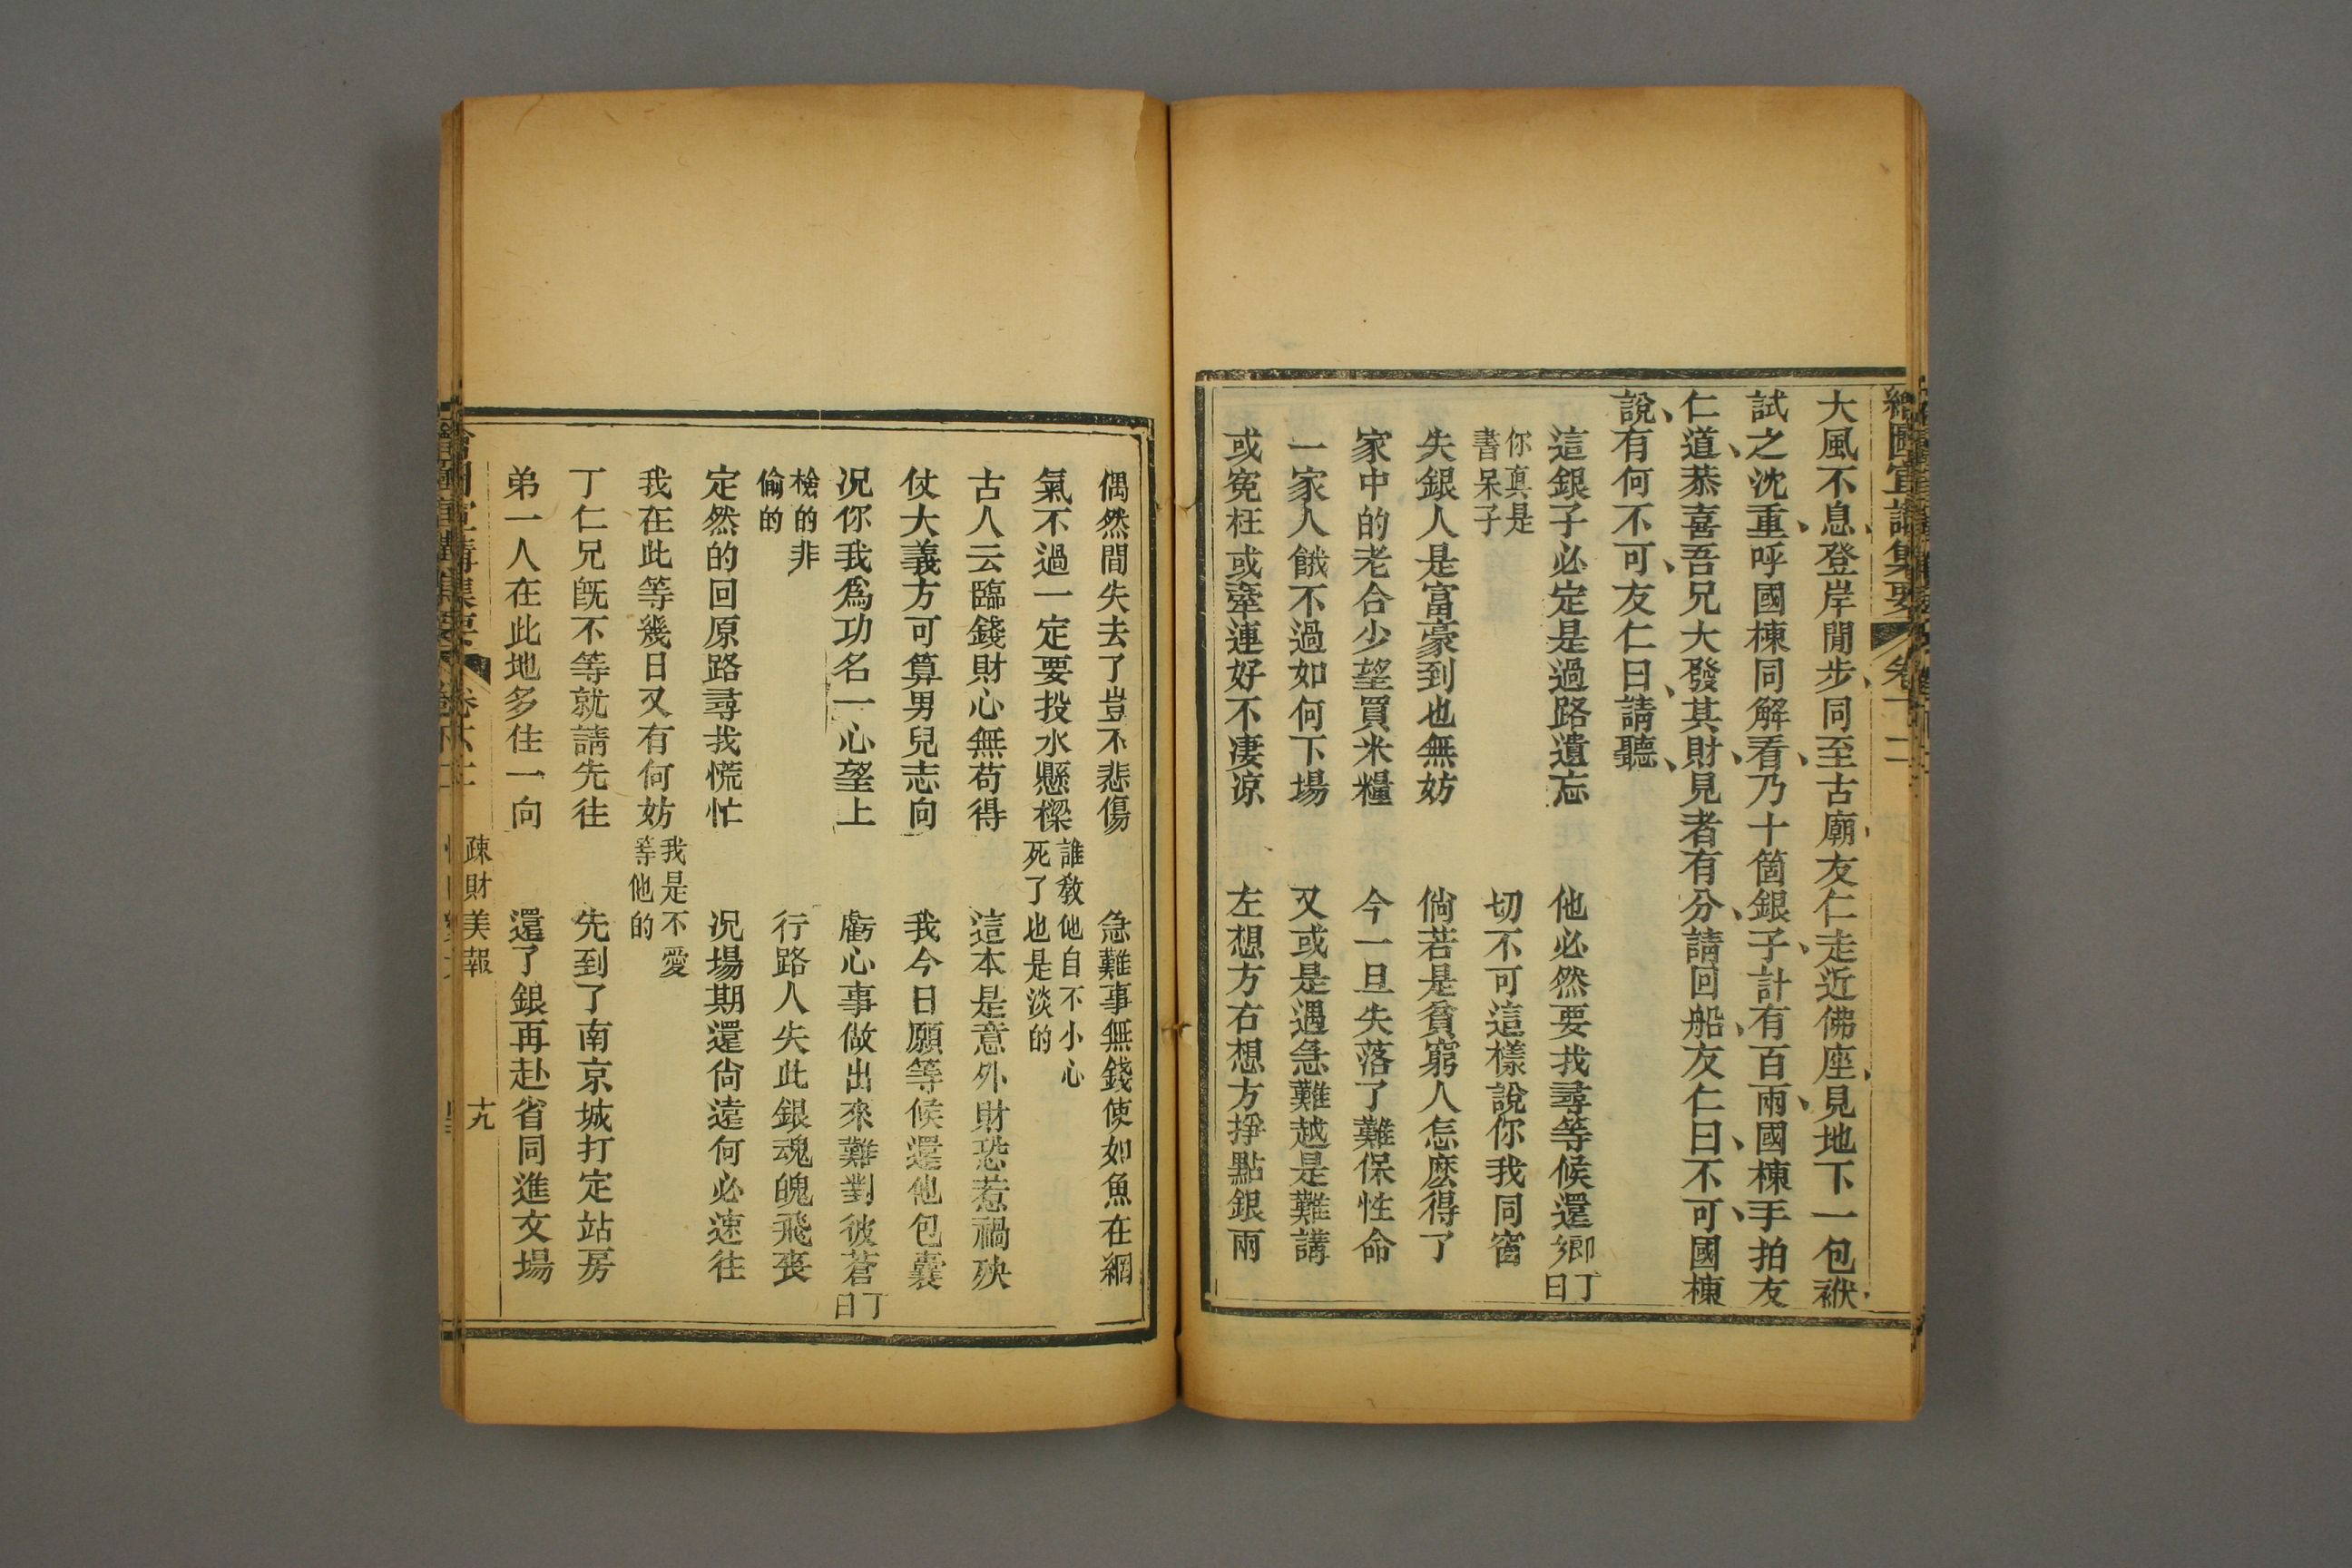 繪圖宣講集要 卷十二
大風不息登岸閒步同至古廟友仁走近佛座見地下一包袱
試之沈重呼國棟同解看乃十箇銀子計有百兩國棟手拍友
仁道恭喜吾兄大發其財見者有分請回船友仁曰不可國棟
說有何不可友仁曰請聽
這銀子必定是過路遺忘 他必然要找尋等候還鄉丁曰
你真是書呆子 切不可這樣說你我同窗
失銀人是富豪到也無妨 倘若是貧窮人怎麽得了
家中的老合少望買米糧 今一旦失落了難保性命
一家人餓不過如何下場 又或是遇急難越是難講
或寃枉或牽連好不凄凉 左想方右想方掙點銀兩
偶然間失去了豈不悲傷 急難事無錢使如魚在網
氣不過一定要投水懸樑 誰敎他自不小心死了也是淡的
古人云臨錢財心無苟得 這本是意外財恐惹禍殃
仗大義方可算男兒志向 我今日願等候還他包囊
况你我爲功名一心望上 虧心事做出來難對彼蒼丁曰
檢的非偷的 行路人失此銀魂魄飛喪
定然的回原路尋找慌忙 况場期還尙遠何必速往
我在此等幾日又有何妨 我是不愛等他的
丁仁兄旣不等就請先往 先到了南京城打定站房
弟一人在此地多住一向 還了銀再赴省同進文場
疎財美報 十九